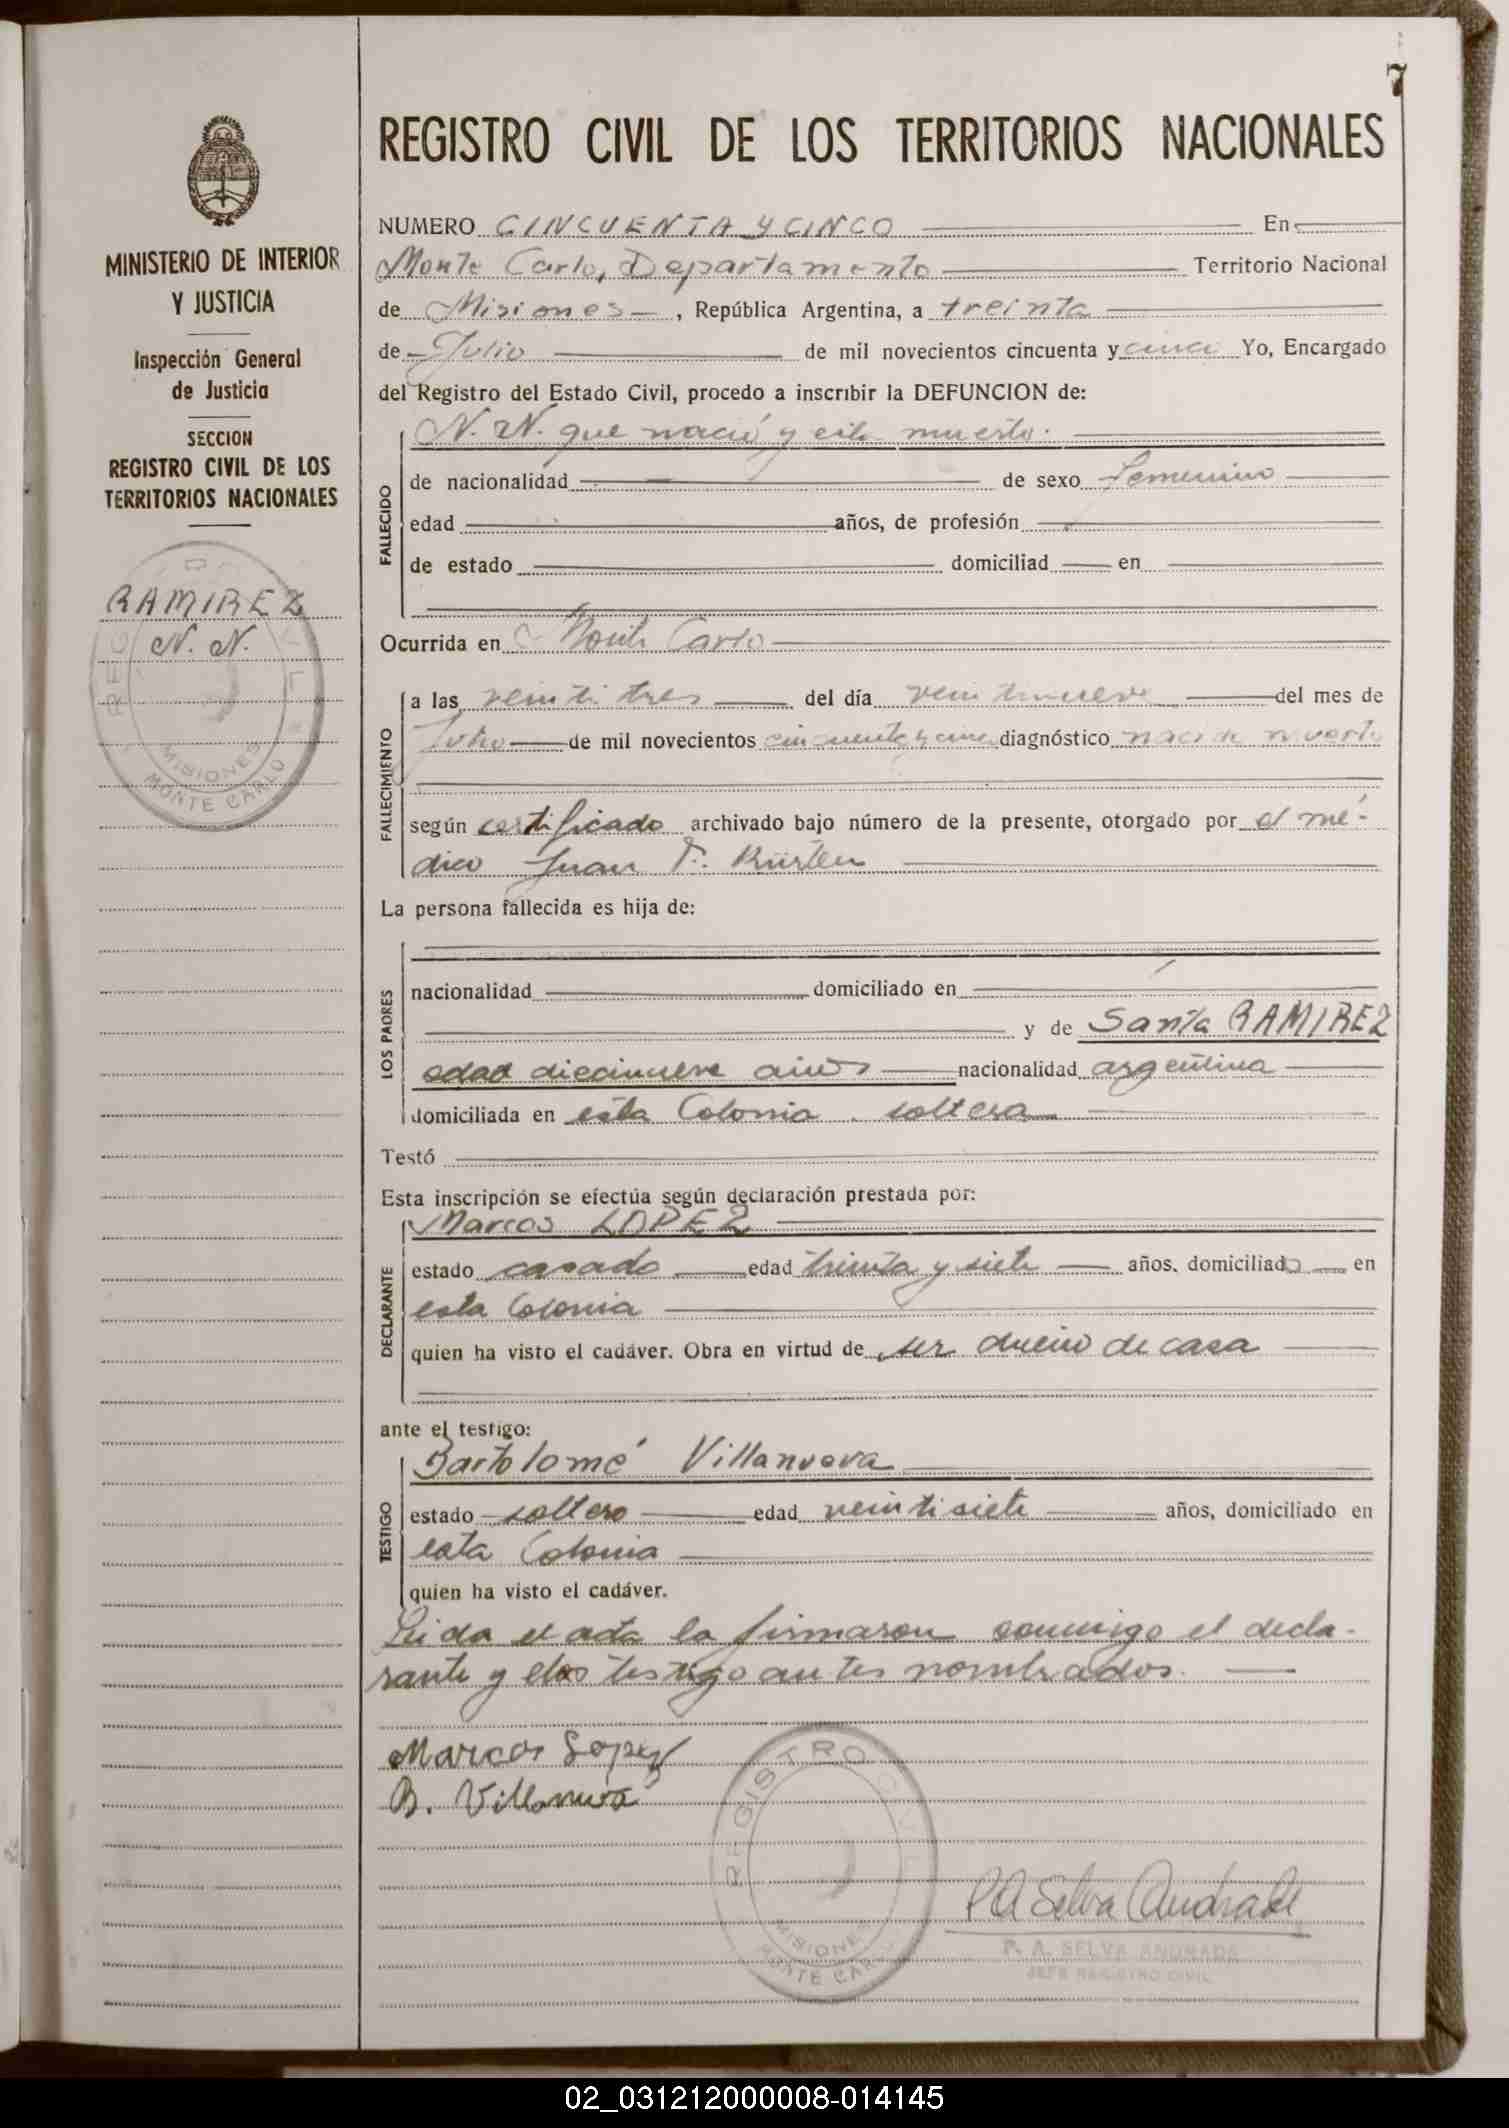 7
REGISTRO CIVIL DE LOS TERRITORIOS NACIONALES
MINISTERIO DE INTERIOR
Y JUSTICIA
Inspección General
de Justicia
SECCION
REGISTRO CIVIL DE LOS
TERRITORIOS NACIONALES
RAMIREZ
N. N.
REG
MISIONES
MONTE CARLO
NUMERO CINCUENTA Y CINCO En
Monte Carlo, Departamento Territorio Nacional
de Misiones, República Argentina, a treinta
de Julio de mil novecientos cincuenta y cinco Yo, Encargado
del Registro del Estado Civil, procedo a inscribir la DEFUNCION de:
N. N. que nació y está muerto.
FALLECIDO
de nacionalidad de sexo Femenino
edad años, de profesión
de estado domiciliad en
Ocurrida en Monte Carlo
FALLECIMIENTO
a las veintitres del día veintinueve del mes de
Julio de mil novecientos cincuenta y cinco diagnóstico nacida muerta
según certificado archivado bajo número de la presente, otorgado por el mé-
dico Juan F.
La persona fallecida es hija de:
LOS PADRES
nacionalidad domiciliado en
y de Santa RAMIREZ
edad diecinueve años nacionalidad argentina
domiciliada en esta Colonia. soltera
Testó
Esta inscripción se efectúa según declaración prestada por:
DECLARANTE
Marcos LOPEZ
estado casado edad treinta y siete años, domiciliado en
esta Colonia
quien ha visto el cadáver. Obra en virtud de ser dueño de casa
ante el testigo:
TESTIGO
Bartolomé Villanueva
estado soltero edad veintisiete años, domiciliado en
esta Colonia
quien ha visto el cadáver.
Leida el acta la firmaron conmigo el decla-
rante y testigo antes nombrados.
Marcos Lopez
B. Villanueva
REGISTRO CIVIL
MISIONES
MONTE CARLO
P A Selva Andrade
P. A. SELVA ANDRADA
JEFE REGISTRO CIVIL
02_031212000008-014145